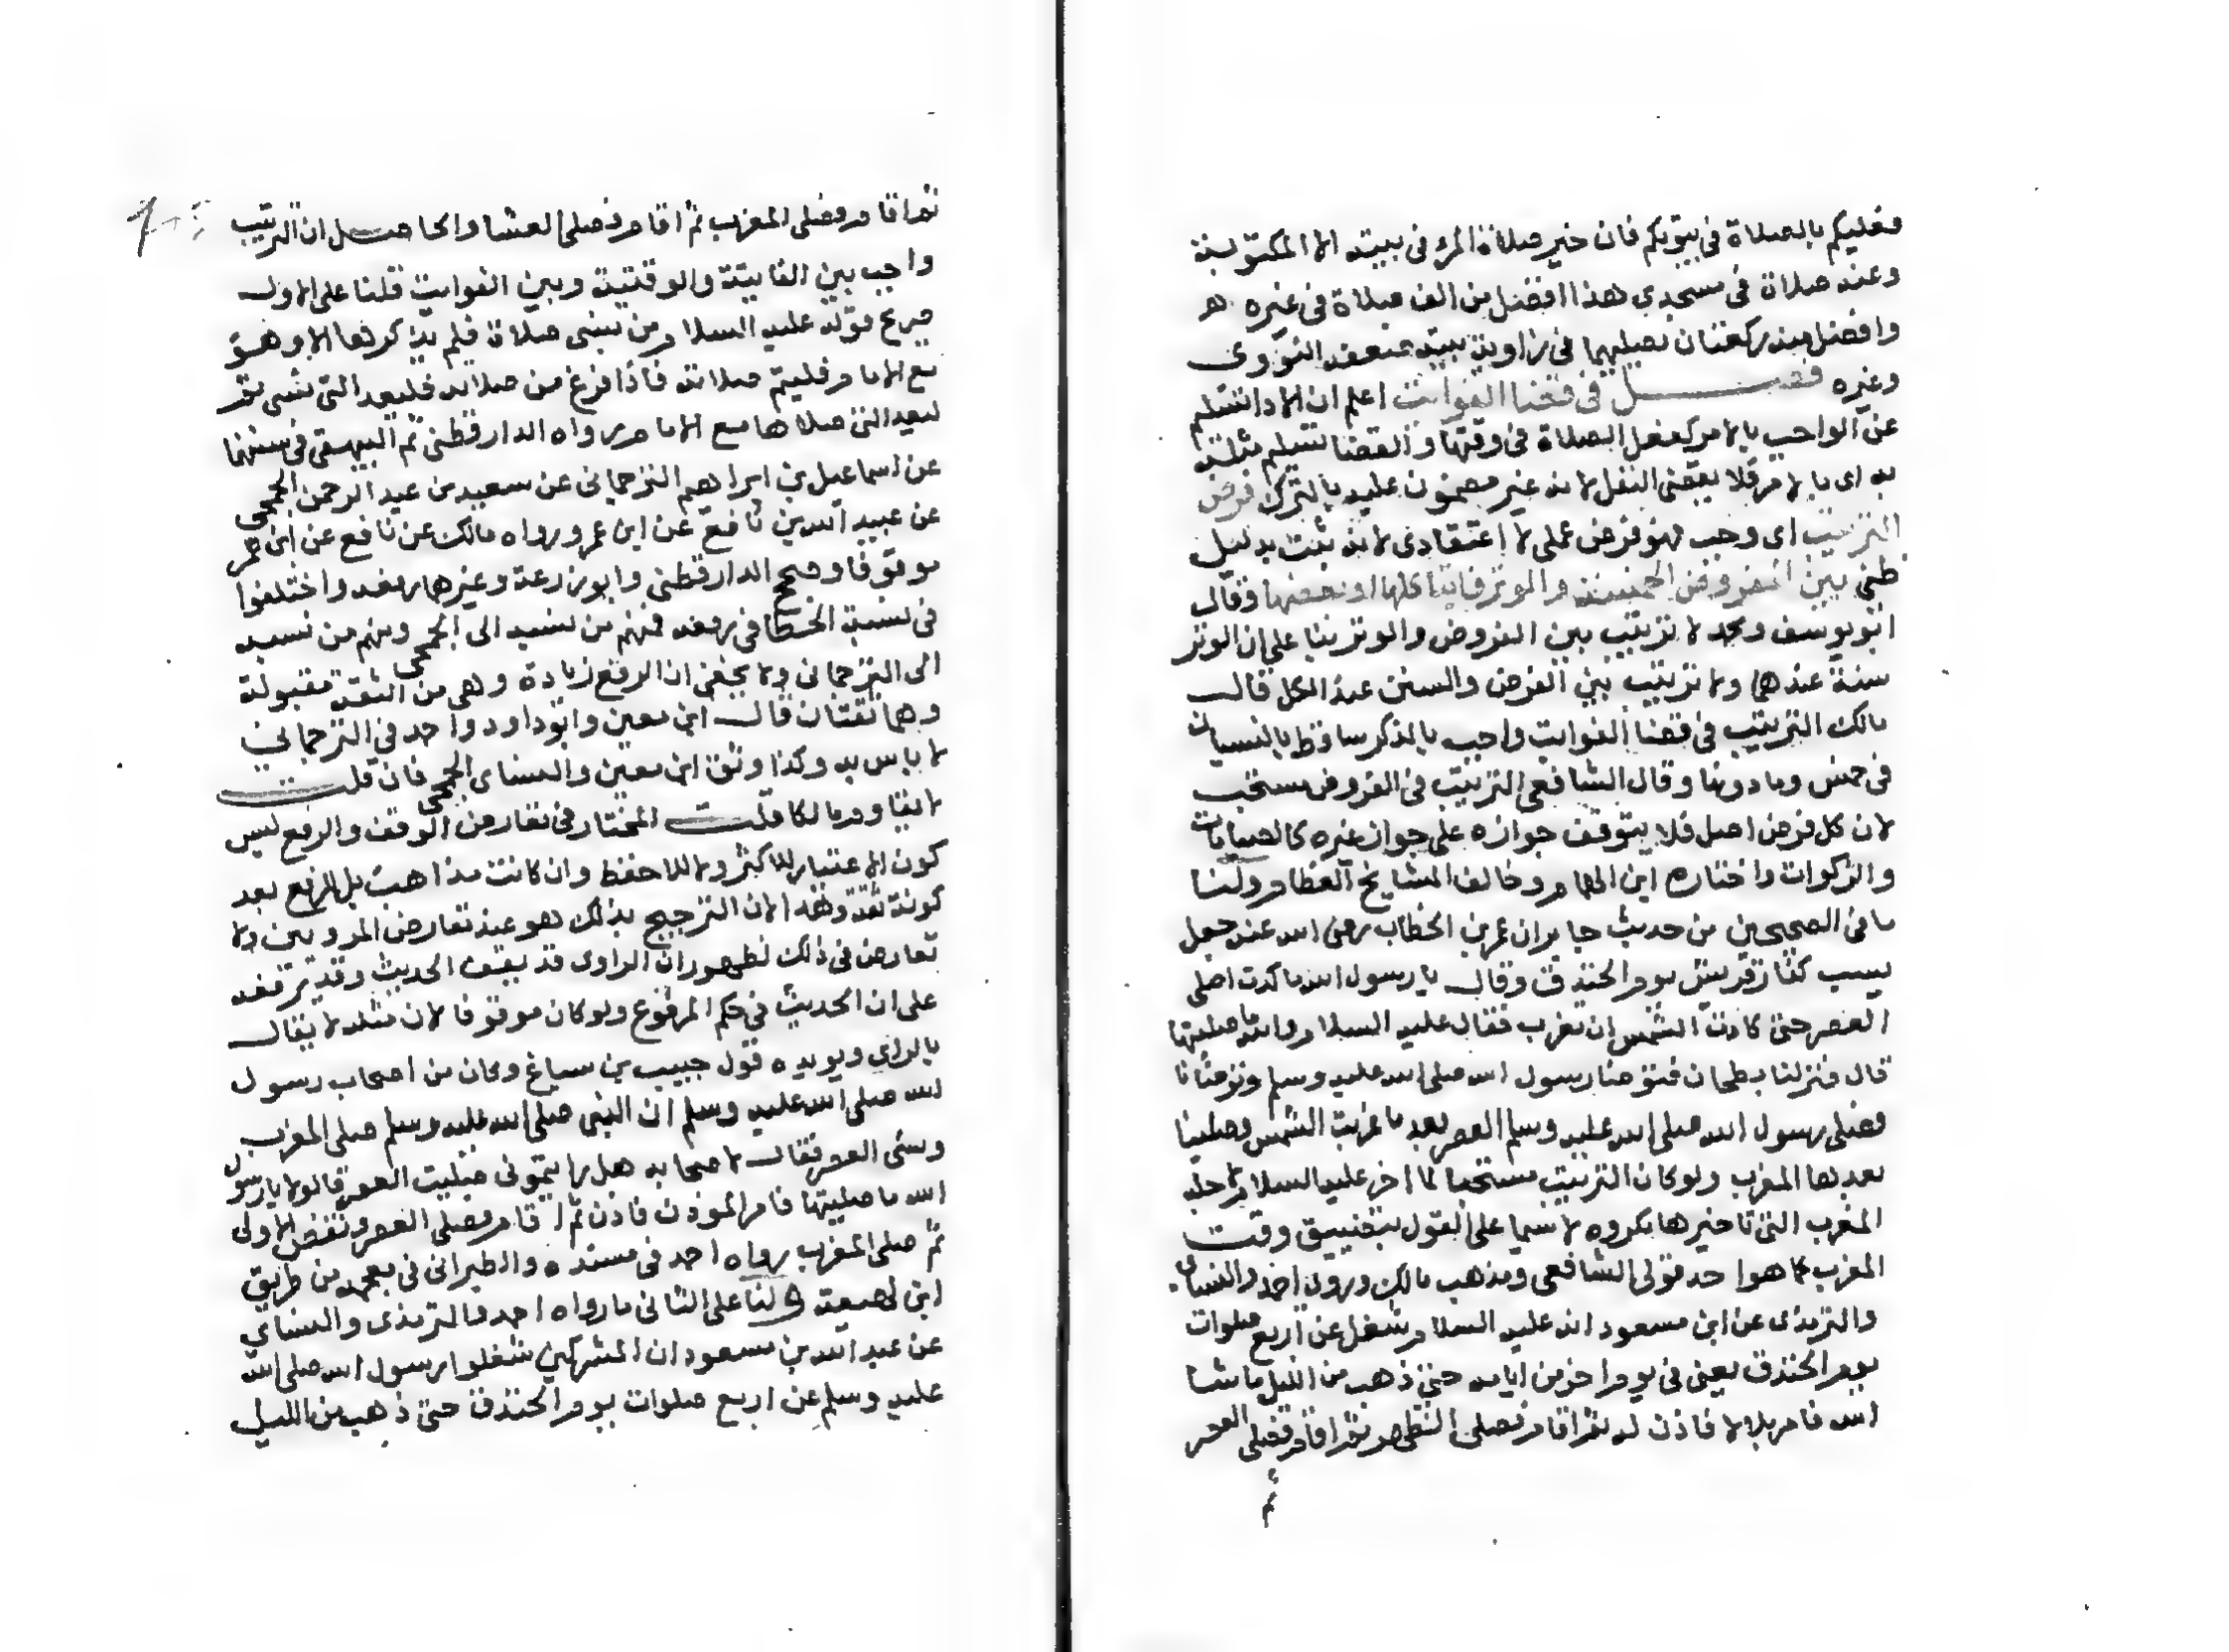 فعليكم بالصلاة في بيوتكم فان خير صلاة المرء في بيته الا المكتوبة
وعنه صلاة في مسجدي هذا افضل من الف صلاة في غيره
وافضل منه ركعتان يصليهما في زاوية بيته ضعفه النووى
وغيره فصل في قضا الفوايت اعلم ان الادا تسليم
عن الواجب بالامر كفعل الصلاة في وقتها والقضا تسليم مثله
به اى بالامر فلا يقضى النفل لانه غير مضمون عليه بالترك فرض
الترتيب اى وجب فهو فرض عملى لا اعتقادى لانه يثبت بدليل
ظنى بين الفروض الخمسة والوتر فايتا كلها او بعضها وقال
ابو يوسف ومحمد لا ترتيب بين الفروض والوتر بنا على ان الوتر
سنة عندهما ولا ترتيب بين الفرض والسنن عند الكل قال
مالك الترتيب في قضا الفوايت واجب بالذكر ساقط بالنسيان
في خمس وما دونها وقال الشافعى الترتيب في الفروض مستحب
لان كل فرض اصل فلا يتوقف جوازه على جواز غيره كالصيامات
والزكوات واختاره ابن الهمام وخالف المشايخ العظام ولنا
ما في الصحيحين من حديث جابر ان عمر بن الخطاب رضى الله عنه جعل
يسب كفار قريش يوم الخندق وقال يا رسول الله ما كدت اصلى
العصر حتى كادت الشمس ان تغرب فقال عليه السلام والله ما صليتها
قال فنزلنا بطحان فتوضا رسول الله صلى الله عليه وسلم وتوضانا
فصلى رسول الله صلى الله عليه وسلم العصر بعد ما غربت الشمس وصلينا
بعدها المغرب ولو كان الترتيب مستحبا لما اخر عليه السلام لاجله
المغرب التى تاخيرها مكروه لا سيما على القول بتضييق وقت
المغرب كما هو احد قولى الشافعى ومذهب مالك وروى احمد والنساى
والترمذى عن ابن مسعود انه عليه السلام شغل عن اربع صلوات
يوم الخندق يعنى في يوم اخر من ايامه حتى ذهب من الليل ما شا
الله فامر بلالا فاذن له ثم اقام فصلى الظهر ثم اقام فصلى العصر
ثم
ثم اقام فصلى المغرب ثم اقام فصلى العشا والحاصل ان الترتيب
واجب بين الفايتة والوقتية وبين الفوايت فلنا على الاول
صريح قوله عليه السلام من نسى صلاة فلم يذكرها الا وهو
مع الامام فليتم صلاته فاذا فرغ من صلاته فليعد التى نسى ثم
ليعيد التى صلاها مع الامام رواه الدارقطنى ثم البيهقى في سننهما
عن اسماعيل بن ابراهيم الترجمانى عن سعيد بن عبد الرحمن الجمحى
عن عبيد الله بن نافع عن ابن عمر ورواه مالك عن نافع عن ابن عمر
موقوفا وصحح الدارقطنى وابو زرعة وغيرهما رفعه واختلفوا
في نسبة الخطا في رفعه فمنهم من نسبه الى الجمحى ومنهم من نسبه
الى الترجمانى ولا يخفى ان الرفع زيادة وهى من الثقة مقبولة
وهما ثقتان قال ابن معين وابو داود واحمد في الترجمانى
لا باس به وكذا وثق ابن معين والنساى الجمحى فان قلت
لا يقاوم مالكا قلت المختار في تعارض الوقف والرفع ليس
كون الاعتبار للاكثر ولا للاحفظ وان كانت مذاهب بل الرفع بعد
كونه ثقة وهذا لان الترجيح بذلك هو عند تعارض المرويين ولا
تعارض في ذلك لظهور ان الراوى قد يقف الحديث وقد يرفعه
على ان الحديث في حكم المرفوع ولو كان موقوفا لان مثله لا يقال
بالراى ويويده قول حبيب بن سباع وكان من اصحاب رسول
الله صلى الله عليه وسلم ان النبى صلى الله عليه وسلم صلى المغرب
ونسى العصر فقال لاصحابه هل رايتمونى صليت العصر قالوا لا يا رسول
الله ما صليتها فامر الموذن فاذن ثم اقام فصلى العصر ونقض الاولى
ثم صلى المغرب رواه احمد في مسنده والطبرانى في معجمه من طريق
ابن لهيعة ولنا على الثانى ما رواه احمد والترمذى والنساي
عن عبد الله بن مسعود ان المشركين شغلوا رسول الله صلى الله
عليه وسلم عن اربع صلوات يوم الخندق حتى ذهب من الليل